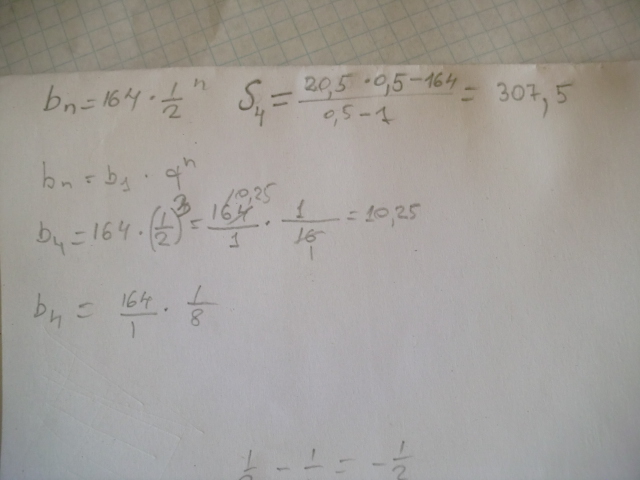 bₙ = 164 · 1/2ⁿ   S₄ = (20,5 · 0,5 − 164)/(0,5 − 1) = 307,5
bₙ = b₁ · qⁿ
10,25
b₄ = 164 · (1/2)³ = 164/1 · 1/16 = 10,25
1
b₄ = 164/1 · 1/8
1/2 − 1 = − 1/2